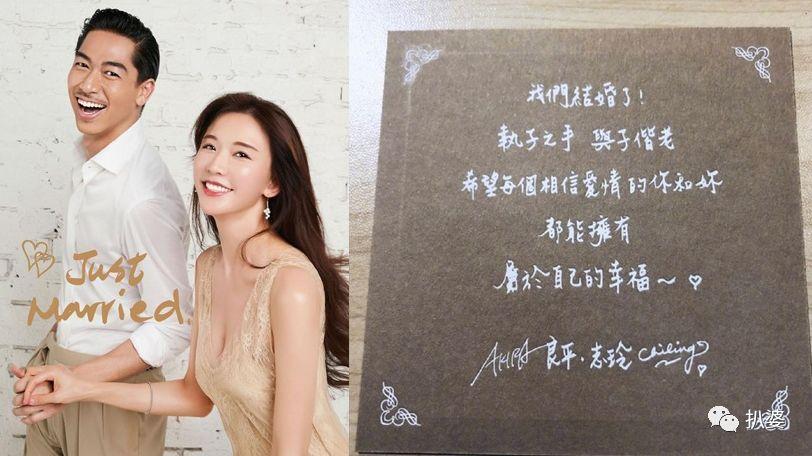 Just
Married.
我們結婚了!
執子之手 與子偕老
希望每個相信愛情的你和妳
都能擁有
屬於自己的幸福~♡
AKIRA 良平·志玲 Chiling
扒婆